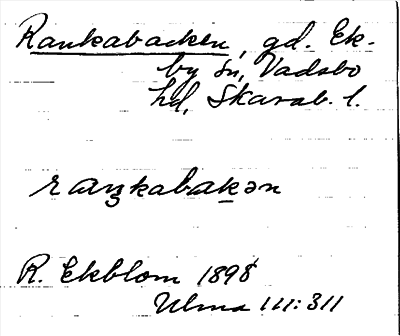 Rankabacken, gd. Ek-
by sn, Vadsbo
hd, Skarab. l.
raŋkabakən
R. Ekblom 1898
Ulma 111:311